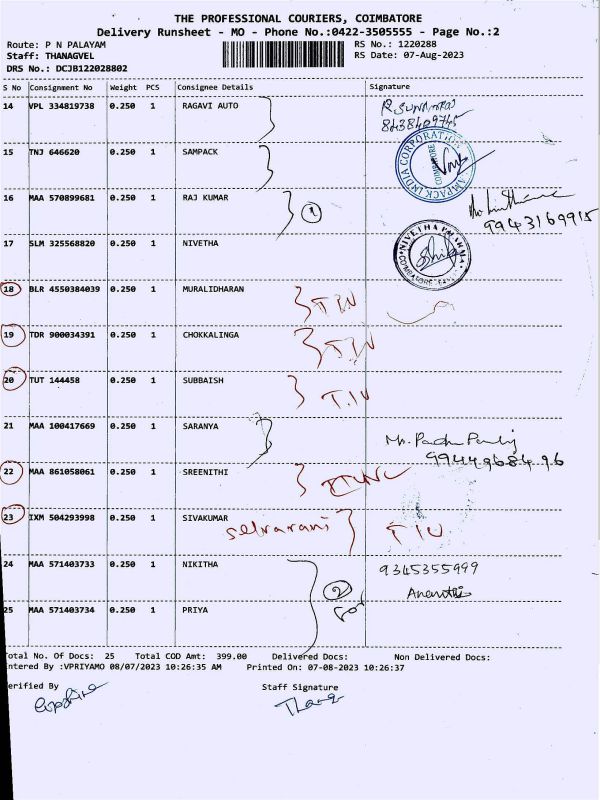 THE PROFESSIONAL COURIERS, COIMBATORE
Delivery Runsheet - MO - Phone No.:0422-3505555 - Page No.:2
Route: P N PALAYAM RS No.: 1220288
Staff: THANAGVEL RS Date: 07-Aug-2023
DRS No.: DCJB122028802
S No Consignment No Weight PCS Consignee Details Signature
14 VPL 334819738 0.250 1 RAGAVI AUTO
8438409745
15 TNJ 646620 0.250 1 SAMPACK
COIMBATORE
16 MAA 570899681 0.250 1 RAJ KUMAR 1
9943169915
17 SLM 325568820 0.250 1 NIVETHA
NIVETHA PHARMA
18 BLR 4550384039 0.250 1 MURALIDHARAN
19 TDR 900034391 0.250 1 CHOKKALINGA
20 TUT 144458 0.250 1 SUBBAISH T.IU
21 MAA 100417669 0.250 1 SARANYA
22 MAA 861058061 0.250 1 SREENITHI
23 IXM 504293998 0.250 1 SIVAKUMAR
Selvarani TIU
24 MAA 571403733 0.250 1 NIKITHA 9345355999
2
25 MAA 571403734 0.250 1 PRIYA
Total No. Of Docs: 25 Total COD Amt: 399.00 Delivered Docs: Non Delivered Docs:
ntered By :VPRIYAMO 08/07/2023 10:26:35 AM Printed On: 07-08-2023 10:26:37
erified By Staff Signature